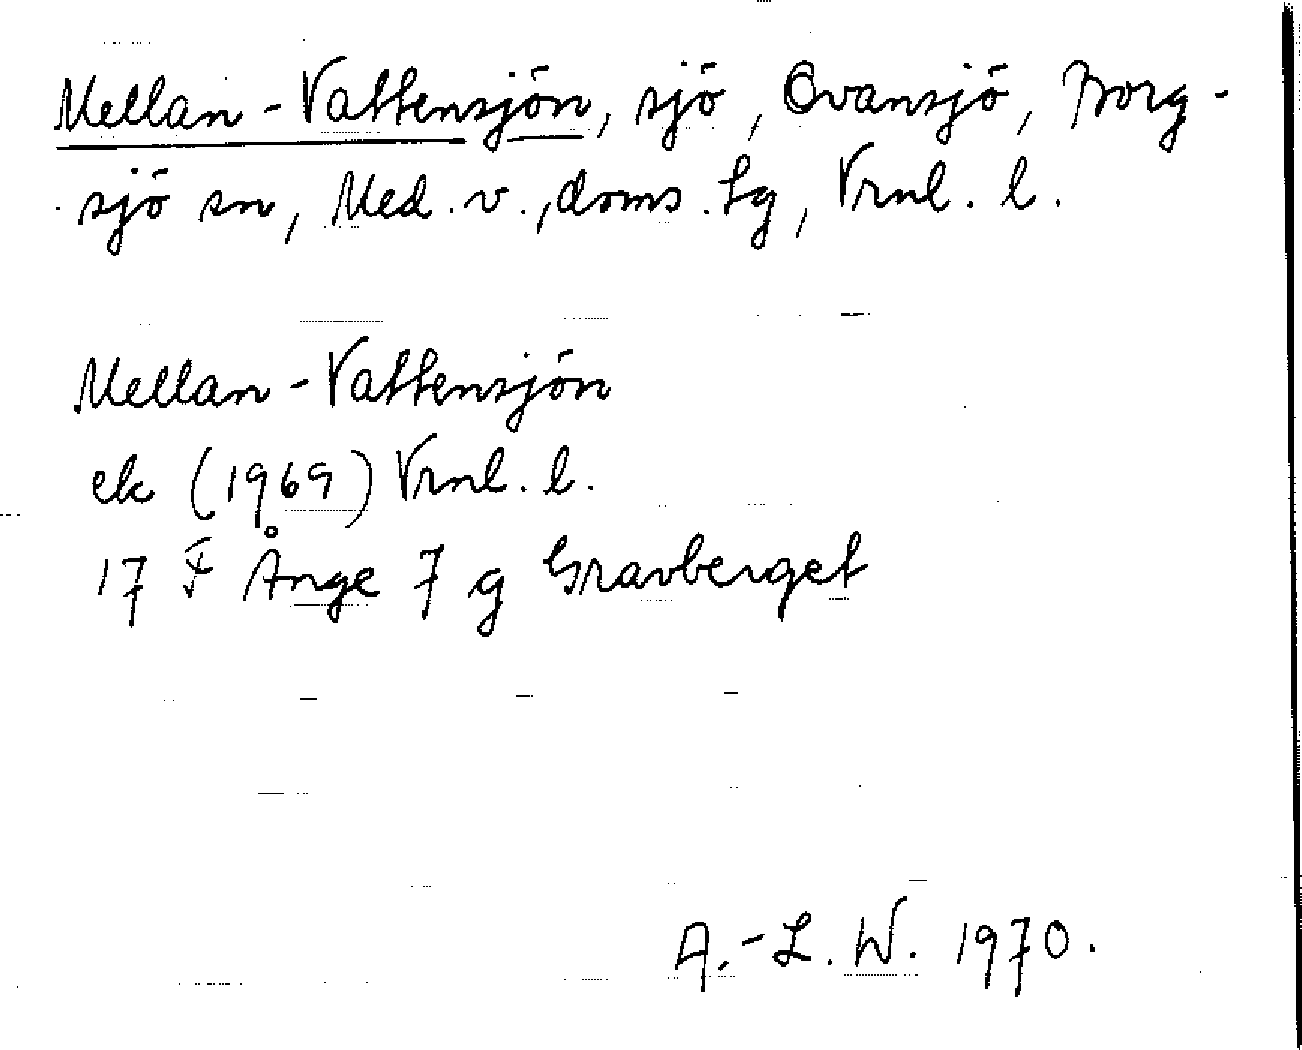 Mellan-Vattensjön, sjö, Ovansjö, Borg-
sjö sn, Med. v., doms. tg, Vrnl. l.
Mellan-Vattensjön
ek (1969) Vrnl. l.
17 F Ånge 7 g Gravberget
A.-L. W. 1970.